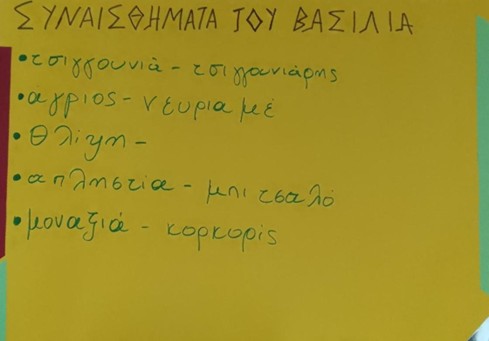 ΣΥΝΑΙΣΘΗΜΑΤΑ ΤΟΥ ΒΑΣΙΛΙΑ
• τσιγγουνιά - τσιγγουνιάρης
• άγριος - νευριαμέ
• θλίψη -
• απληστία - μπιτσαλό
• μοναξιά - κορκορίς